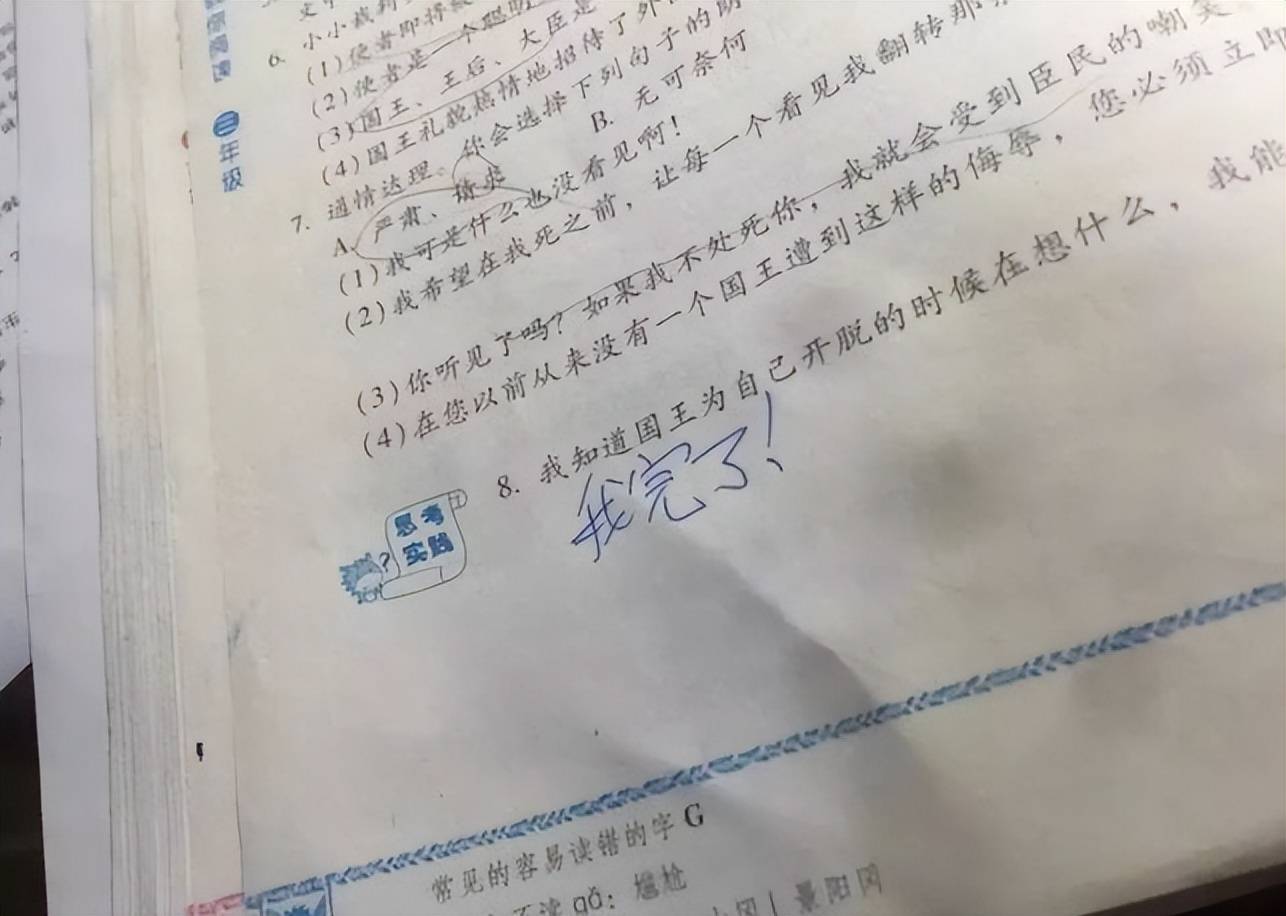 三年级
6. 小小裁判
(1)使者即将被
(2)使者是一个聪明
(3)国王、王后、大臣是
(4)国王礼貌热情地招待了外
7. 通情达理。你会选择下列句子的
A. 严肃、 B. 无可奈何
(1)我可是什么也没看见啊!
(2)我希望在我死之前,让每一个看见我翻转那
(3)你听见了吗?如果我不处死你,我就会受到臣民的嘲笑
(4)在您以前从来没有一个国王遭到这样的侮辱,您必须立即
思考
实践
8. 我知道国王为自己开脱的时候在想什么,我能
我完了!
常见的容易读错的字 G
不读 gǒ:尴尬
冈 | 景阳冈